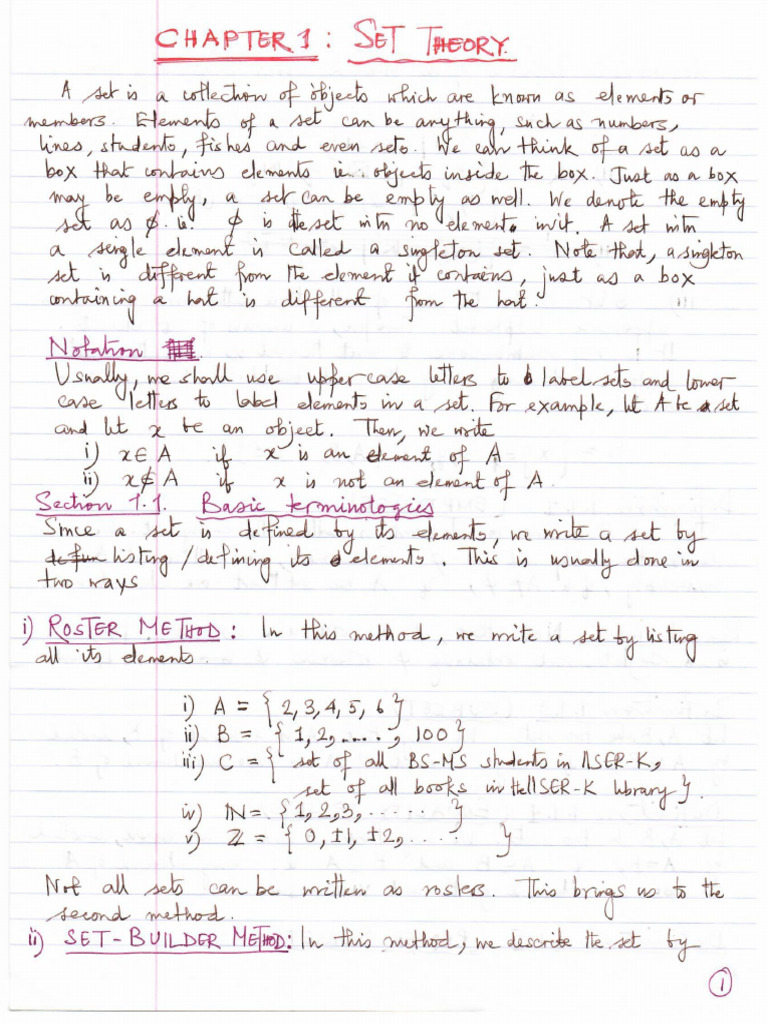 CHAPTER 1 : SET THEORY.
A set is a collection of objects which are known as elements or
members. Elements of a set can be anything, such as numbers,
lines, students, fishes and even sets. We can think of a set as a
box that contains elements ie. objects inside the box. Just as a box
may be empty, a set can be empty as well. We denote the empty
set as ϕ. ie. ϕ is the set with no element in it. A set with
a single element is called a singleton set. Note that, a singleton
set is different from the element it contains, just as a box
containing a hat is different from the hat.
Notation
Usually, we shall use upper case letters to label sets and lower
case letters to label elements in a set. For example, let A be a set
and let x be an object. Then, we write
i) x ∈ A if x is an element of A
ii) x ∉ A if x is not an element of A.
Section 1.1. Basic terminologies
Since a set is defined by its elements, we write a set by
listing / defining its elements. This is usually done in
two ways
i) ROSTER METHOD : In this method, we write a set by listing
all its elements.
i) A = { 2, 3, 4, 5, 6 }
ii) B = { 1, 2, ....., 100 }
iii) C = { set of all BS-MS students in IISER-K,
set of all books in the IISER-K library }.
iv) ℕ = { 1, 2, 3, ...... }
v) ℤ = { 0, ±1, ±2, ..... }
Not all sets can be written as rosters. This brings us to the
second method.
ii) SET-BUILDER METHOD: In this method, we describe the set by
1